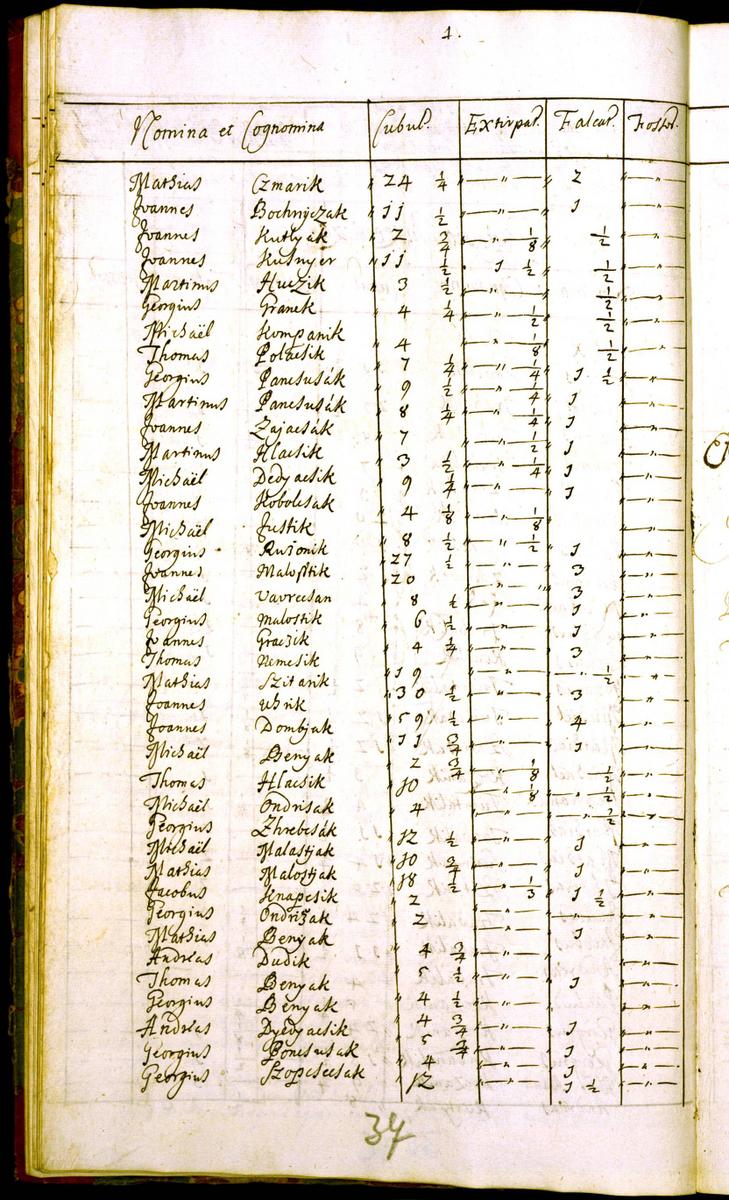 1.
Nomina et Cognomina Cubul. Extirpat. Falcat. Fossor.
Mathias Czmarik " 24 1/4 " — " — " 2 " — " —
Joannes Bochnyczak " 11 1/2 " — " — " 1 " — " —
Joannes Kutlyak " 2 3/4 " — " 1/8 1/2 " — " —
Joannes Kusnyer " 11 1/2 1 1/2 1/2 " — " —
Martinus Huczik " 3 1/2 " — " — 1/2 " — " —
Georgius Granek " 4 1/4 " — " 1/2 1/2 " — " —
Michaël Kompanik
Thomas Polacsik " 4 " — " 1/8 1/2 " — " —
Georgius Pancsusák " 7 1/4 " — " 1/4 1 1/2 " — " —
Martinus Pancsusák " 9 1/2 " — " 1/4 1 " — " —
Joannes Zajacsák " 8 1/4 " — " 1/4 1 " — " —
Martinus Hlacsik " 7 " — " 1/2 1 " — " —
Michaël Dedyacsik " 3 1/2 " — " 1/4 1 " — " —
Joannes Kobolcsak " 9 1/4 " — " — 1 " — " —
Michaël Justik " 4 1/8 " — " 1/8 " — " —
Georgius Rusonik " 8 1/2 " — " 1/2 1 " — " —
Joannes Malostik " 27 1/2 " — " — 3 " — " —
Michaël Vavrecsan " 20 " — " — 3 " — " —
Georgius Malostik " 8 1/2 " — " — 1 " — " —
Joannes Graczik " 6 1/2 " — " — 1 " — " —
Thomas Nemesik " 4 1/4 " — " — 3 " — " —
Mathias Szitarik " 19 " — " — " — 1/2 " — " —
Joannes Uhrik " 30 1/2 " — " — 3 " — " —
Joannes Dombjak " 59 1/2 " — " — 4 " — " —
Michaël Benyak " 11 3/4 " — " — 1 " — " —
Thomas Hlacsik " 2 3/4 " — " 1/8 1/2 " — " —
Michaël Ondrisak " 10 " — " 1/8 1/2 " — " —
Georgius Zhrebcsák " 4 " — " — " — 1/2 " — " —
Michaël Malastjak " 12 1/2 " — " — 1 " — " —
Mathias Malostjak " 10 3/4 " — " — 1 " — " —
Jacobus Knapcsik " 18 1/2 " — " 1/3 1 1/2 " — " —
Georgius Ondrisak " 2 " — " — " — " —
Mathias Benyak " 2 " — " — 1 " — " —
Andreas Dudik " 4 3/4 " — " — " — " —
Thomas Benyak " 5 1/2 " — " — 1 " — " —
Georgius Benyak " 4 1/2 " — " — " — " —
Andreas Dyedyacsik " 4 3/4 " — " — 1 " — " —
Georgius Poncsusak " 5 3/4 " — " — 1 " — " —
Georgius Szopcsecsak " 4 " — " — 1 " — " —
" 12 " — " — 1 1/2 " — " —
34